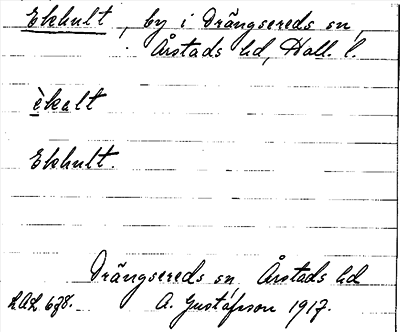 Ekhult, by i Drängsereds sn,
Årstads hd, Hall. l.
èkalt
Ekhult.
Drängsereds sn Årstads hd
LAL 678. A. Gustáfsson 1917.